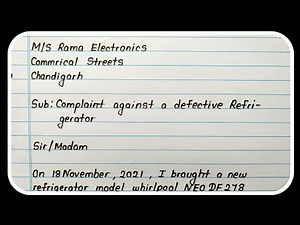 M/S Rama Electronics
Commrical Streets
Chandigarh
Sub: Complaint against a defective Refri-
gerator
Sir/Madam
On 18 November, 2021, I brought a new
refrigerator model whirlpool NEO DF 278